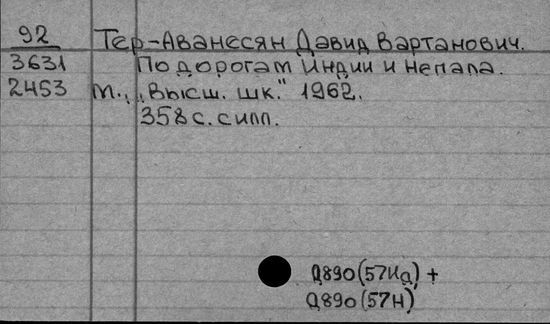 92 Тер-Аванесян Давид Вартанович.
3631 По дорогам Индии и Непала.
2453 М., „Высш. шк." 1962.
358 с. с илл.
Д890(57Ид) +
Д890(57Н)